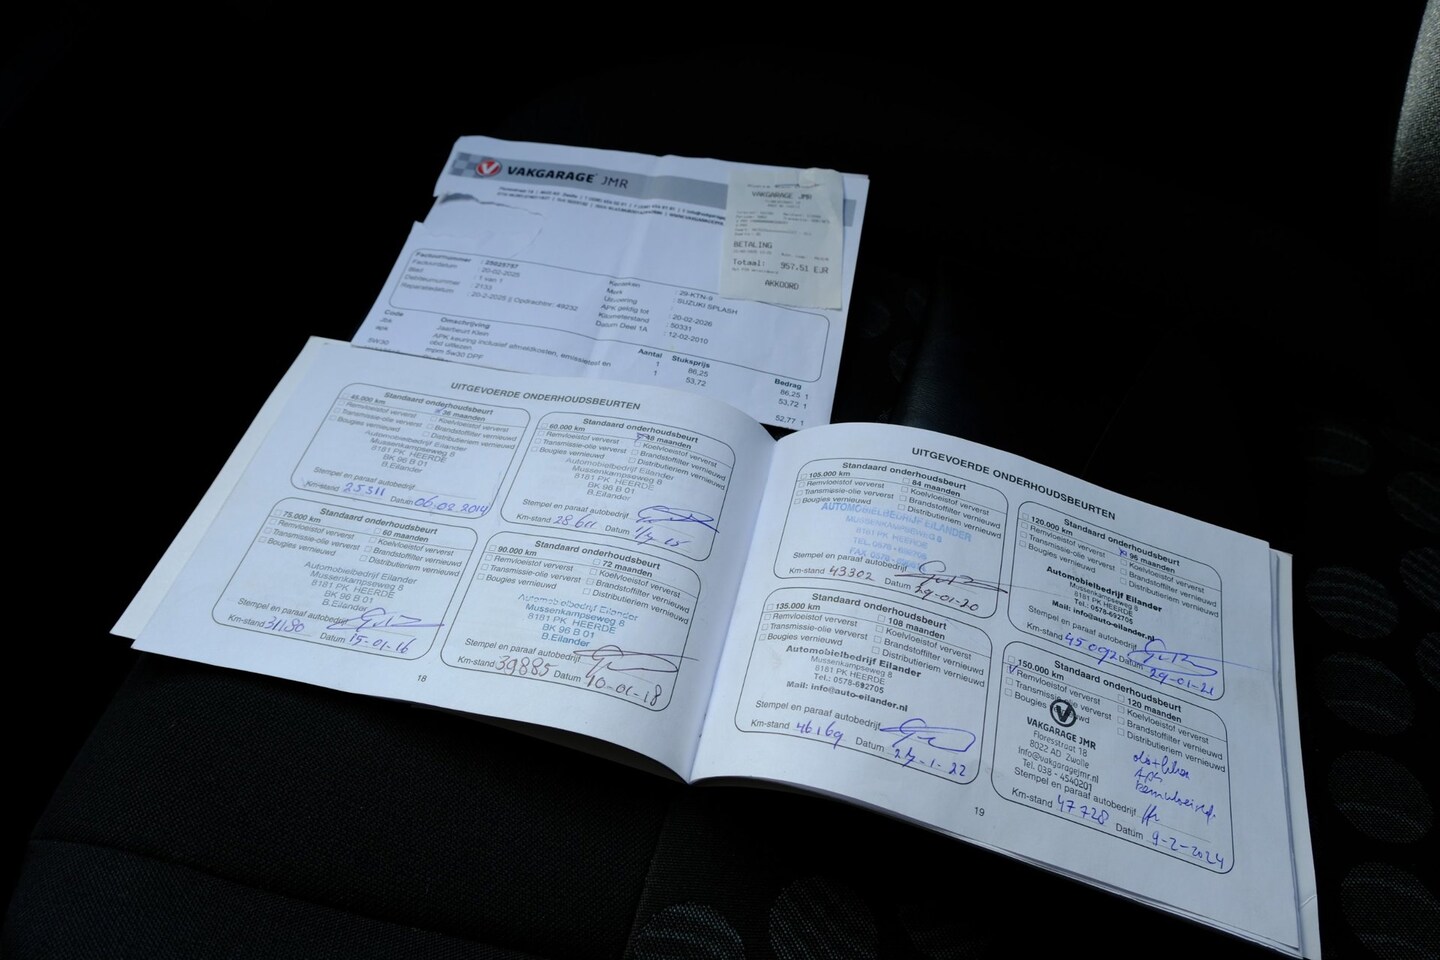 VAKGARAGE JMR
VAKGARAGE JMR
BETALING
Totaal: 957.51 EUR
AKKOORD
Factuurnummer : 25025757
Factuurdatum : 20-02-2025
Blad : 1 van 1
Debiteurnummer : 2133
Reparatiedatum : 20-2-2025 || Opdrachtnr: 49232
Kenteken : 29-KTN-9
Merk : SUZUKI SPLASH
Uitvoering
Apk geldig tot : 20-02-2026
Kilometerstand : 50331
Datum Deel 1A : 12-02-2010
Code Omschrijving Aantal Stuksprijs Bedrag
Jbk Jaarbeurt Klein 1 86,25 86,25 1
apk APK keuring inclusief afmeldkosten, emissietest en 1 53,72 53,72 1
obd uitlezen
5W30 mpm 5w30 DPF 52,77 1
UITGEVOERDE ONDERHOUDSBEURTEN
Standaard onderhoudsbeurt
45.000 km 36 maanden
Remvloeistof ververst Koelvloeistof ververst
Transmissie-olie ververst Brandstoffilter vernieuwd
Bougies vernieuwd Distributieriem vernieuwd
Automobielbedrijf Eilander
Mussenkampseweg 8
8181 PK HEERDE
BK 96 B 01
B.Eilander
Stempel en paraaf autobedrijf
Km-stand 25311 Datum 06-02-2014
Standaard onderhoudsbeurt
60.000 km 48 maanden
Remvloeistof ververst Koelvloeistof ververst
Transmissie-olie ververst Brandstoffilter vernieuwd
Bougies vernieuwd Distributieriem vernieuwd
Automobielbedrijf Eilander
Mussenkampseweg 8
8181 PK HEERDE
BK 96 B 01
B.Eilander
Stempel en paraaf autobedrijf
Km-stand 28611 Datum
Standaard onderhoudsbeurt
75.000 km 60 maanden
Remvloeistof ververst Koelvloeistof ververst
Transmissie-olie ververst Brandstoffilter vernieuwd
Bougies vernieuwd Distributieriem vernieuwd
Automobielbedrijf Eilander
Mussenkampseweg 8
8181 PK HEERDE
BK 96 B 01
B.Eilander
Stempel en paraaf autobedrijf
Km-stand 31180 Datum 15-01-16
Standaard onderhoudsbeurt
90.000 km 72 maanden
Remvloeistof ververst Koelvloeistof ververst
Transmissie-olie ververst Brandstoffilter vernieuwd
Bougies vernieuwd Distributieriem vernieuwd
Automobielbedrijf Eilander
Mussenkampseweg 8
8181 PK HEERDE
BK 96 B 01
B.Eilander
Stempel en paraaf autobedrijf
Km-stand 39885 Datum 10-01-18
18
UITGEVOERDE ONDERHOUDSBEURTEN
Standaard onderhoudsbeurt
105.000 km 84 maanden
Remvloeistof ververst Koelvloeistof ververst
Transmissie-olie ververst Brandstoffilter vernieuwd
Bougies vernieuwd Distributieriem vernieuwd
AUTOMOBIELBEDRIJF EILANDER
MUSSENKAMPSEWEG 8
8181 PK HEERDE
TEL. 0578-692705
FAX 0578
Stempel en paraaf autobedrijf
Km-stand 43302 Datum 29-01-20
Standaard onderhoudsbeurt
120.000 km 96 maanden
Remvloeistof ververst Koelvloeistof ververst
Transmissie-olie ververst Brandstoffilter vernieuwd
Bougies vernieuwd Distributieriem vernieuwd
Automobielbedrijf Eilander
Mussenkampseweg 8
8181 PK HEERDE
Tel.: 0578-692705
Mail: info@auto-eilander.nl
Stempel en paraaf autobedrijf
Km-stand 45092 Datum 29-01-21
Standaard onderhoudsbeurt
135.000 km 108 maanden
Remvloeistof ververst Koelvloeistof ververst
Transmissie-olie ververst Brandstoffilter vernieuwd
Bougies vernieuwd Distributieriem vernieuwd
Automobielbedrijf Eilander
Mussenkampseweg 8
8181 PK HEERDE
Tel.: 0578-692705
Mail: info@auto-eilander.nl
Stempel en paraaf autobedrijf
Km-stand 46169 Datum 24-1-22
Standaard onderhoudsbeurt
150.000 km 120 maanden
Remvloeistof ververst Koelvloeistof ververst
Transmissie ververst Brandstoffilter vernieuwd
Bougies Distributieriem vernieuwd
VAKGARAGE JMR
Floresstraat 18
8022 AD Zwolle
Info@vakgaragejmr.nl
Tel. 038 - 4540201
olie+filter
APK
remvloeistof.
Stempel en paraaf autobedrijf
Km-stand 47728 Datum 9-2-2024
19